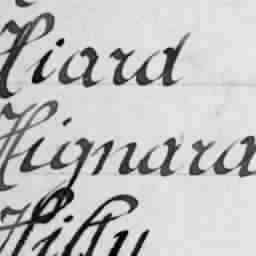 Hiard
Hignard
Hilly